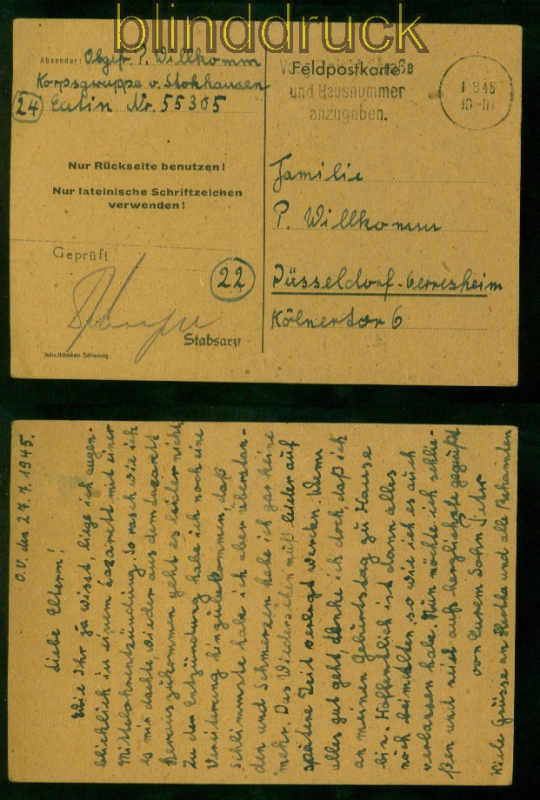 blinddruck
Absender: Obgefr. P. Willkomm
Korpsgruppe v. Stokhausen
24 Eutin Nr. 55305
Nur Rückseite benutzen!
Nur lateinische Schriftzeichen
verwenden!
Geprüft
22
Stabsarzt
Feldpostkarte
Straße
und Hausnummer
anzugeben.
1 8 45
10-11
Familie
P. Willkomm
Düsseldorf-Gerresheim
Kölnertor 6
O.U. den 27.7.1945.
Liebe Eltern!
Wie Ihr ja wisst, liege ich augen-
blicklich in einem Lazarett mit einer
Mittelohrentzündung. So rasch wie ich
es mir dachte, wieder aus dem Lazarett
herauszukommen geht es leider nicht.
Zu der Entzündung habe ich noch eine
Vereiterung hinzubekommen, daß
schlimmste habe ich aber überstan-
den und Schmerzen habe ich gar keine
mehr. Das Wiedersehn muß leider auf
spätere Zeit verlegt werden. Wenn
alles gut geht, denke ich doch daß ich
an meinen Geburtstag zu Hause
bin. Hoffentlich ist dann alles
noch beim alten so wie ich es auch
verlassen habe. Nun möchte ich schlie-
ßen und seid auf's herzlichste gegrüßt
von Eurem Sohn Peter
Viele Grüsse an und alle Bekannten